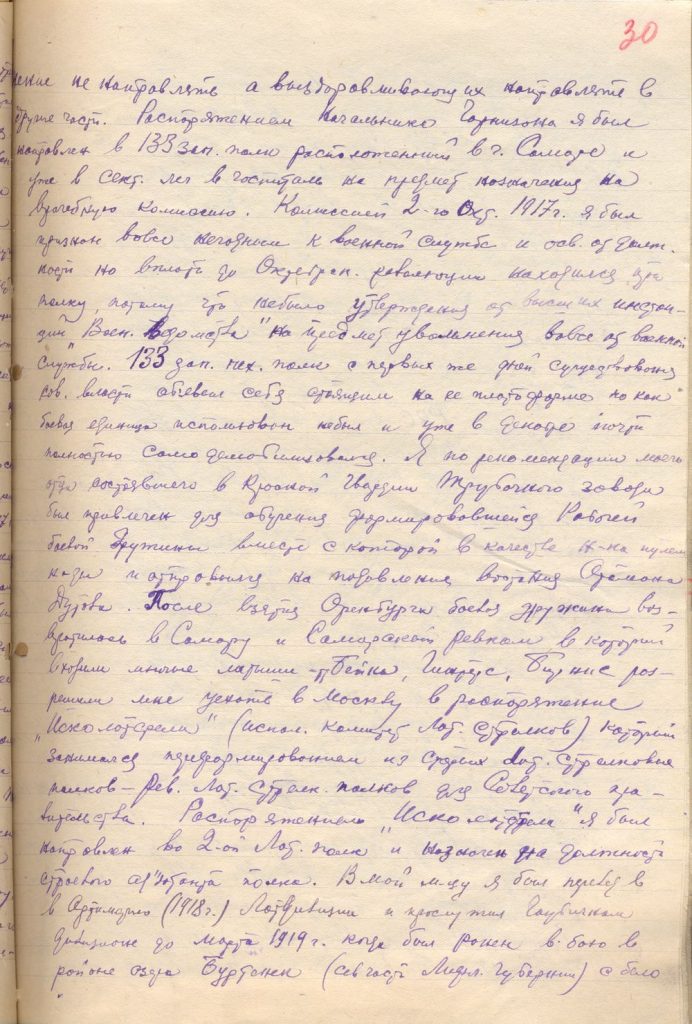 30
нение не направлять а выздоравливающих направлять в
другие части. Распоряжением Начальника Гарнизона я был
направлен в 133 зап. полк расположенный в г. Самаре и
уже в сент. лег в госпиталь на предмет назначения на
врачебную комиссию. Комиссией 2-го Окт. 1917 г. я был
признан вовсе негодным к военной службе и осв. от должн.
ности но вплоть до Октябрьск. революции находился при
полку, потому что небыло утверждения от высших инстан-
ций „Воен. Ведомства" на предмет увольнения вовсе от военной
службы. 133 зап. пех. полк с первых же дней существования
сов. власти объявил себя стоящим на ее платформе но как
боевая единица использован небыл и уже в декабре почти
полностью самодемобилизовался. Я по рекомендации моего
отца состоявшего в Красной Гвардии Трубочного завода
был привлечен для обучения формировавшейся Рабочей
боевой дружины вместе с которой в качестве н-ка пулем.
и отправился на подавление востания Атамана
Дутова. После взятия Оренбурга боевая дружина воз-
вратилась в Самару и Самарский ревком в который
входили многие латыши - Бейка, Бирнис раз-
решили мне уехать в Москву в распоряжение
„Исколотстрела" (испол. комитет Лат. стрелков) который
занимался переформированием из старых Лат. стрелковых
полков - Рев. Лат. стрелк. полков для Советского пра-
вительства. Распоряжением „Исколотстрела" я был
направлен во 2-ой Лат. полк и назначен на должность
строевого ад'ютанта полка. В мае м-цу я был переведен
в Артиллерию (1918 г.) Латдивизии и прослужил Гаубичном
дивизионе до марта 1919 г. когда был ранен в бою в
районе озера Буртнек (сев часть Лифл. Губернии) с бело